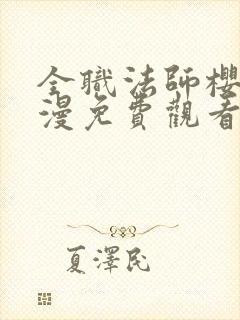 全職法師櫻
漫免費觀看
夏澤民